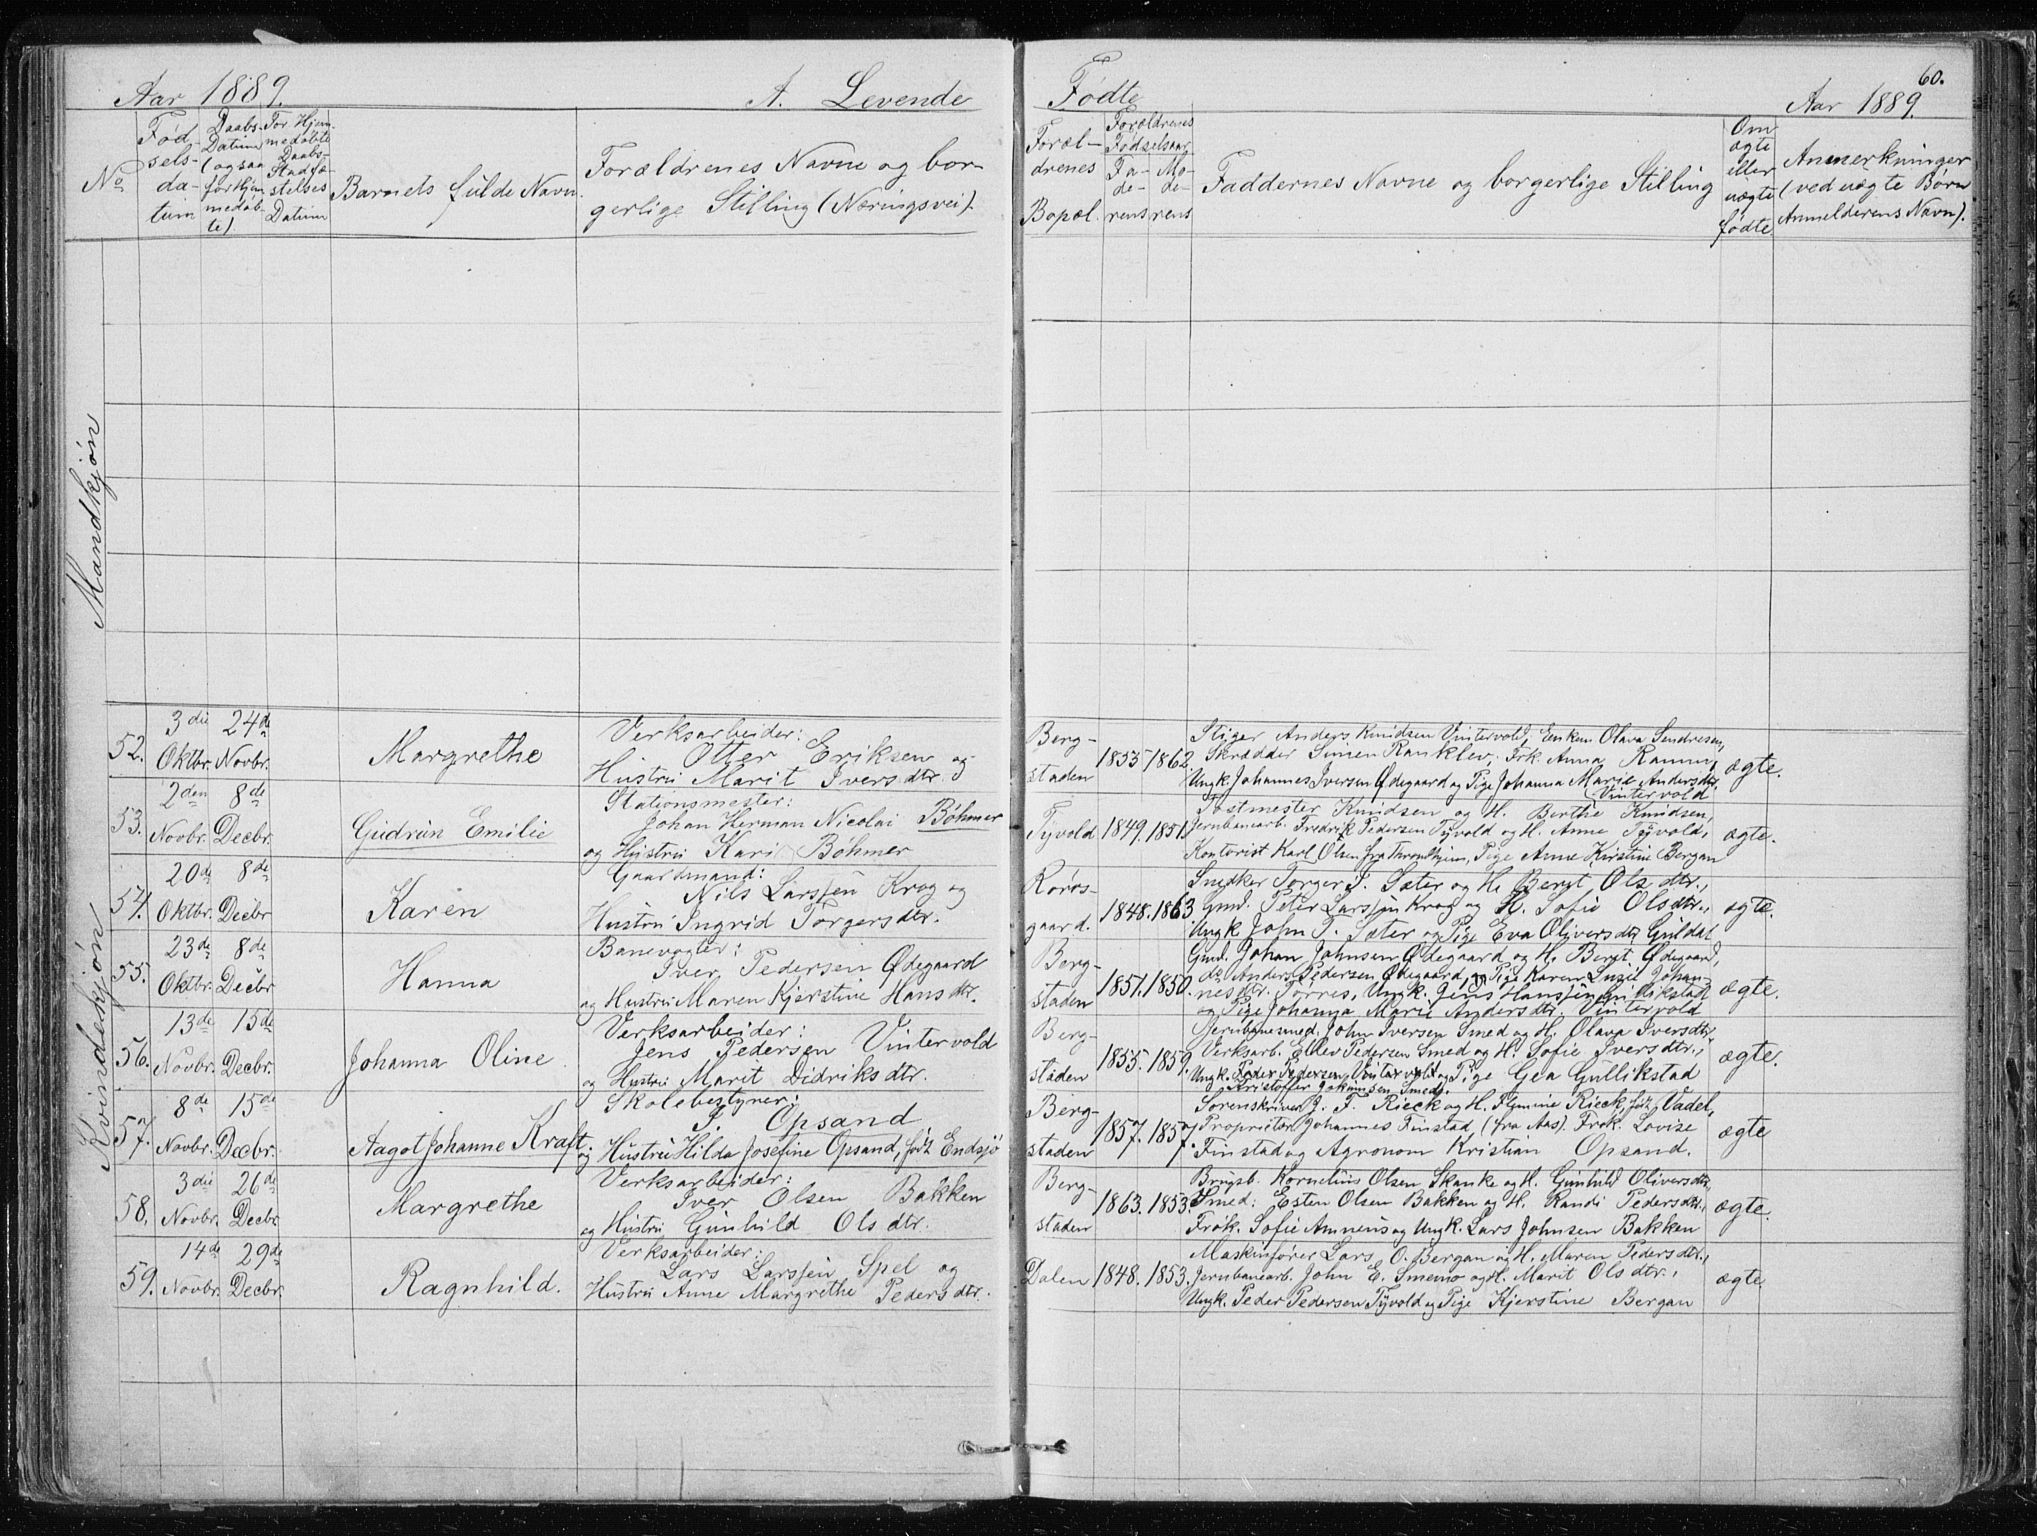 Aar 1889.
A. Levende
Fødte
60.
Aar 1889.
No
Fød-
sels-
da-
tum
Daabs-
Datum
(ogsaa
for hjem
medøb-
te)
For Hjem-
medøbte
Daabs-
Stadfæ-
stelses
Datum
Barnets fulde Navn
Forældrenes Navne og bor-
gerlige Stilling (Næringsvei).
Foræl-
drenes
Bopæl.
Forældrenes
Fødselsaar
Fa-
de-
rens
Mo-
de-
rens
Faddernes Navne og borgerlige Stilling
Om
ægte
eller
uægte
fødte
Anmerkninger
(ved uægte Børn
Anmelderens Navn).
Mandkjøn
Kvindekjøn
52.
3die
Oktbr.
24de
Novbr.
Margrethe
Verksarbeider:
Otter Eriksen og
Hustru Marit Iversdtr.
Berg-
staden
1855
1862
Stiger Anders Knudsen Vintervold, Enken Olava Sendresen,
Skrædder Simen Ranklev, Frk. Anna Ramm,
Ungk. Johannes Iversen Ødegaard og Pige Johanna Marie Andersdtr.
Vintervold
ægte.
53.
2den
Novbr.
8de
Decbr.
Gudrun Emilie
Stationsmester:
Johan Herman Nicolai Böhmer
og Hustru Kari Böhmer
Tyvold.
1849.
1851
Postmester Knudsen og H. Berthe Knudsen,
Jernbanearb. Fredrik Pedersen Tyvold og H. Anne Tyvold,
Kontorist Karl Olsen fra Throndhjem, Pige Anne Kirstine Bergan
ægte.
54.
20de
Oktbr.
8de
Decbr
Karen
Gaardmand:
Nils Larssen Krog og
Hustru Ingrid Torgersdtr.
Røros-
gaard.
1848.
1863
Snedker Torger J. Sæter og H. Beryt Olsdtr.,
Gmd. Peter Larssen Krog og H. Sofie Olsdtr.,
Ungk John T. Sæter og Pige Eva Oliversdtr Guldal
ægte.
55.
23de
Oktbr.
8de
Decbr
Hanna
Banevogter:
Iver Pedersen Ødegaard
og Hustru Maren Kjerstine Hansdtr.
Berg-
staden
1851.
1850.
Gmd. Johan Johnsen Ødegaard og H. Beryt Ødegaard,
do Anders Pedersen Ødegaard, og Pige Karen Lusie Johan-
nesdtr. Torres, Ungk. Jens Hanssen
og Pige Johanna Marie Andersdtr. Vintervold
ægte.
56.
13de
Novbr.
15de
Decbr.
Johanna Oline
Verksarbeider:
Jens Pedersen Vintervold
og Hustru Marit Didriksdtr.
Berg-
staden
1855.
1859.
Jernbanesmed. John Iversen Smed og H. Olava Iversdtr,
Verksarb. Ellev Pedersen Smed og H. Sofie Iversdtr.,
Ungk. Peder Pedersen Vintervold og Pige Gea Gullikstad
Kristoffer Johansen Smed.
ægte.
57.
8de
Novbr.
15de
Decbr.
Aagot Johanne Kraft
Skolebestyrer:
S. Opsand
og Hustru Hilda Josefine Opsand, født Endsjø
Berg-
staden
1857.
1857.
Sorenskriver J. F. Rieck og H. Flemine Rieck født Vadel,
Proprietær Johannes Finstad (fra Aas). Frøk. Lovise
Finstad og Agronom Kristian Opsand.
ægte
58.
3die
Novbr.
26de
Decbr.
Margrethe
Verksarbeider:
Iver Olsen Bakken
og Hustru Gunhild Olsdtr.
Berg-
staden
1863.
1853
Brugsb. Kornelius Olsen Skanke og H. Gunhild Oliversdtr,
Smed: Esten Olsen Bakken og H. Randi Pedersdtr.,
Frøk. Sofie Amneus og Ungk. Lars Johnsen Bakken
ægte.
59.
14de
Novbr.
29de
Decbr.
Ragnhild.
Verksarbeider:
Lars Larssen Spel og
Hustru Anne Margrethe Pedersdtr.
Dalen
1848.
1853.
Maskinfører Lars O. Bergan og H. Maren Pedersdtr.,
Jernbanearb. John E. Smemo og H. Marit Olsdtr.,
Ungk. Peder Pedersen Tyvold og Pige Kjerstine Bergan
ægte.